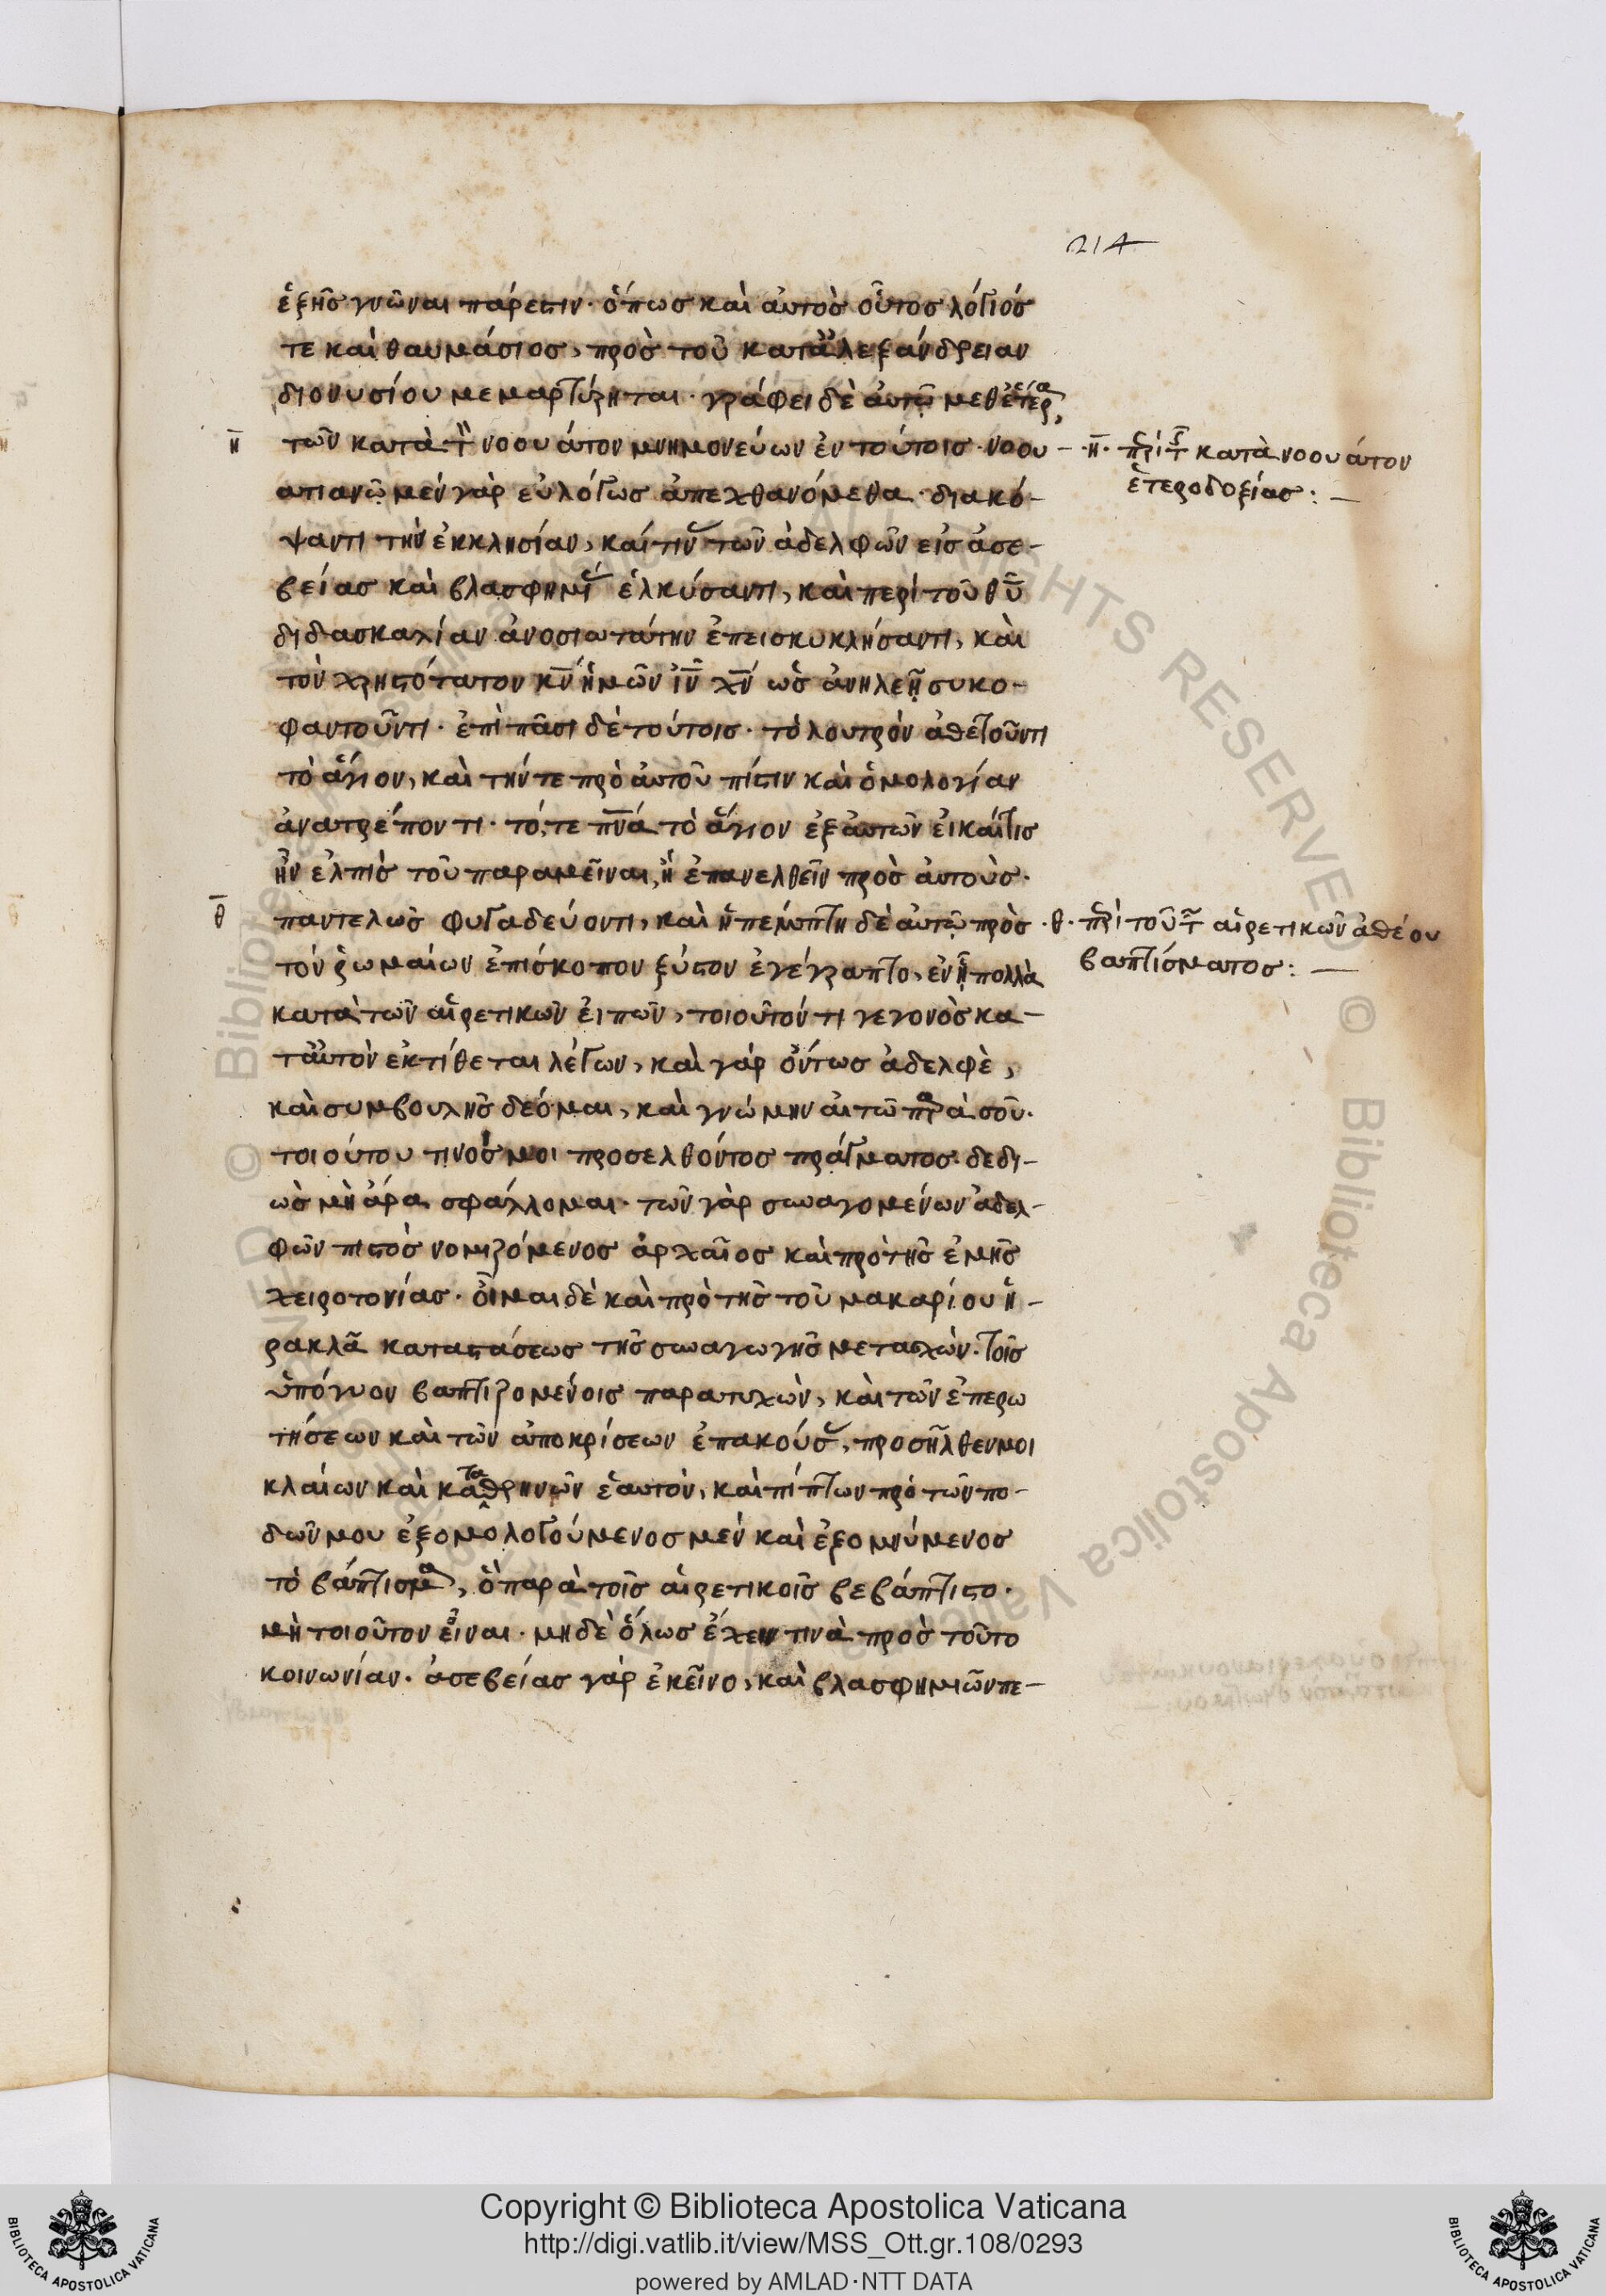 214
ἑξῆς γνῶναι πάρεστιν· ὅπως καὶ αὐτὸς οὗτος λόγιός
τε καὶ θαυμάσιος, πρὸς τοῦ κατ' ἀλεξάνδρειαν
διονυσίου μεμαρτύρηται· γράφει δὲ αὐτῷ μεθ' ἕτερα
η τῶν κατὰ τὸν νοουάτον μνημονεύων ἐν τούτοις· νοου-
ατιανῷ μὲν γὰρ εὐλόγως ἀπεχθανόμεθα· διακό-
ψαντι τὴν ἐκκλησίαν, καί τινας τῶν ἀδελφῶν εἰς ἀσε-
βείας καὶ βλασφημίας ἑλκύσαντι, καὶ περὶ τοῦ θυ
διδασκαλίαν ἀνοσιωτάτην ἐπεισκυκλήσαντι, καὶ
τὸν χρηστότατον κν ἡμῶν ιν χν ὡς ἀνηλεῆ συκο-
φαντοῦντι· ἐπὶ πᾶσι δὲ τούτοις· τὸ λουτρὸν ἀθετοῦντι
τὸ ἅγιον, καὶ τήν τε πρὸ αὐτοῦ πίστιν καὶ ὁμολογίαν
ἀνατρέποντι· τό, τε πνα τὸ ἅγιον ἐξ αὐτῶν εἰ καί τις
ἦν ἐλπὶς τοῦ παραμεῖναι, ἢ ἐπανελθεῖν πρὸς αὐτούς·
θ παντελῶς φυγαδεύοντι, καὶ ἡ πέμπτη δὲ αὐτῷ πρὸς
τὸν ῥωμαίων ἐπίσκοπον ξύστον ἐγέγραπτο, ἐν ᾗ πολλὰ
κατὰ τῶν αἱρετικῶν εἰπὼν, τοιοῦτόν τι γεγονὸς κα-
τ' αὐτὸν ἐκτίθεται λέγων, καὶ γὰρ ὄντως ἀδελφὲ,
καὶ συμβουλῆς δέομαι, καὶ γνώμην αἰτῶ παρὰ σοῦ·
τοιούτου τινός μοι προσελθόντος πράγματος· δεδι-
ὼς μὴ ἄρα σφάλλομαι· τῶν γὰρ συναγομένων ἀδελ-
φῶν πιστὸς νομιζόμενος ἀρχαῖος καὶ πρὸ τῆς ἐμῆς
χειροτονίας· οἶμαι δὲ καὶ πρὸ τῆς τοῦ μακαρίου ἡ-
ρακλᾶ καταστάσεως τῆς συναγωγῆς μετασχών· τοῖς
ὑπόγυον βαπτιζομένοις παρατυχὼν, καὶ τῶν ἐπερω
τήσεων καὶ τῶν ἀποκρίσεων ἐπακούσας, προσῆλθεν μοι
κλαίων καὶ καταθρηνῶν ἑαυτὸν, καὶ πίπτων πρὸ τῶν πο-
δῶν μου ἐξομολογούμενος μὲν καὶ ἐξομνύμενος
τὸ βάπτισμα, ὃ παρὰ τοῖς αἱρετικοῖς βεβάπτιστο·
μὴ τοιοῦτον εἶναι· μηδὲ ὅλως ἔχειν τινὰ πρὸς τοῦτο
κοινωνίαν· ἀσεβείας γὰρ ἐκεῖνο, καὶ βλασφημιῶν πε-
·η· περὶ τῆς κατὰ νοουάτον
ἑτεροδοξίας: —
·θ· περὶ τοῦ τῶν αἱρετικῶν ἀθέου
βαπτίσματος: —
Copyright © Biblioteca Apostolica Vaticana
http://digi.vatlib.it/view/MSS_Ott.gr.108/0293
powered by AMLAD·NTT DATA
BIBLIOTECA APOSTOLICA VATICANA
BIBLIOTECA APOSTOLICA VATICANA